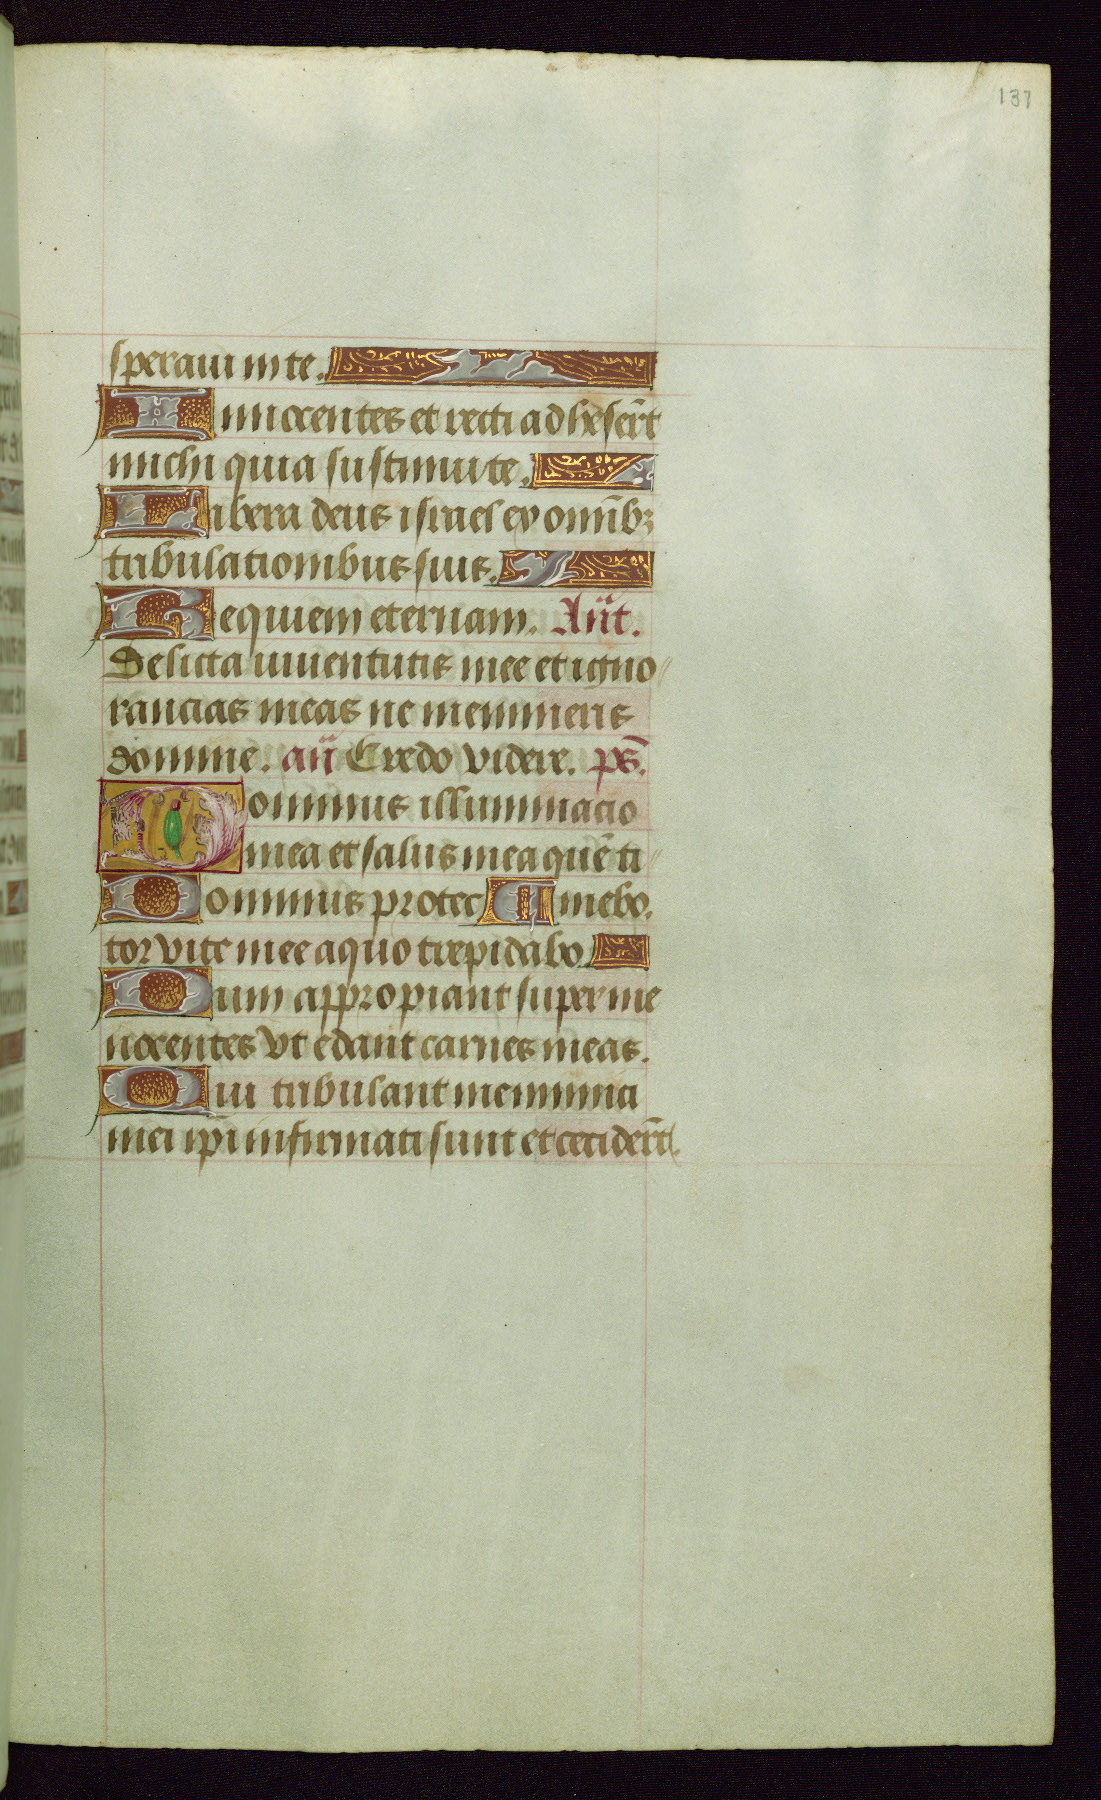 137
speraui in te.
Innocentes et recti adheserūt
michi quia sustinui te.
Libera deus israel ex omībꝫ
tribulationibus suis.
Requiem eternam. Añt.
Delicta iuuentutis mee et igno
rancias meas ne memineris
domine. añ Credo videre. ps̄.
Dominus illuminacio
mea et salus mea quē ti
Dominus protec mebo.
tor vite mee a quo trepidabo.
Dum appropiant super me
nocentes vt edant carnes meas.
Qui tribulant me inimici
mei ip̄i infirmati sunt et ceciderūt.